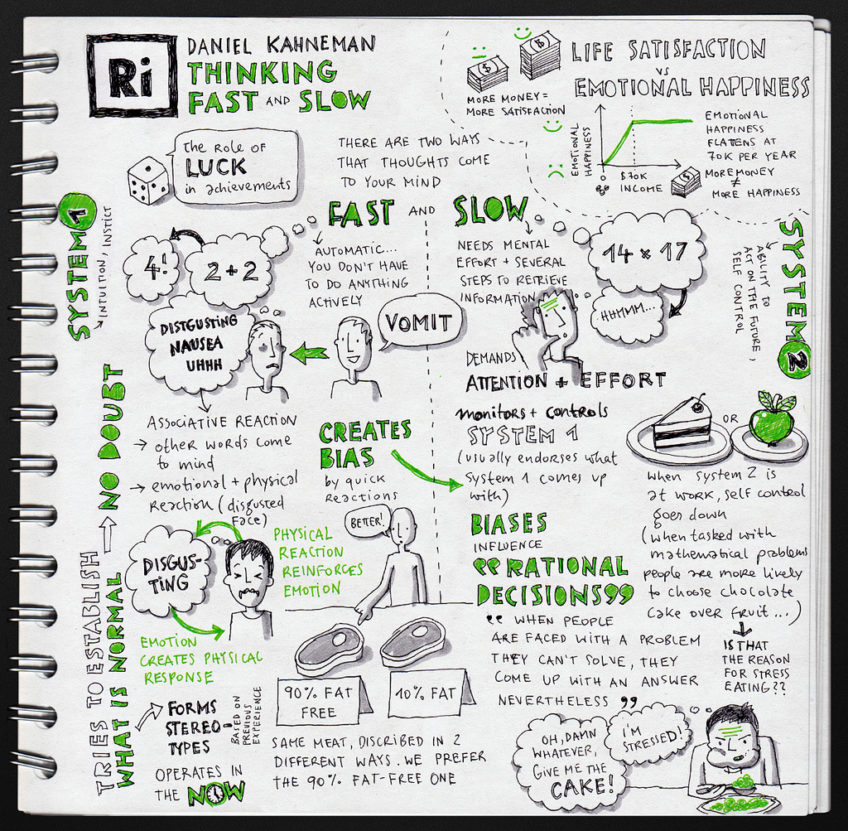 Ri
DANIEL KAHNEMAN
THINKING
FAST AND SLOW
LIFE SATISFACTION
VS
EMOTIONAL HAPPINESS
MORE MONEY =
MORE SATISFACTION
EMOTIONAL
HAPPINESS
$70K
INCOME
EMOTIONAL
HAPPINESS
FLATENS AT
70K PER YEAR
MORE MONEY
≠
MORE HAPPINESS
the role of
LUCK
in achievements
THERE ARE TWO WAYS
THAT THOUGHTS COME
TO YOUR MIND
FAST AND SLOW
SYSTEM 1
INTUITION, INSTICT
4!
2+2
AUTOMATIC...
YOU DON'T HAVE
TO DO ANYTHING
ACTIVELY
NEEDS MENTAL
EFFORT + SEVERAL
STEPS TO RETRIEVE
INFORMATION
14 x 17
HHMMM...
SYSTEM 2
ABILITY TO
ACT ON THE FUTURE,
SELF CONTROL
DISTGUSTING
NAUSEA
UHHH
VOMIT
DEMANDS
ATTENTION + EFFORT
monitors + controls
SYSTEM 1
(usually endorses what
System 1 comes up
with)
OR
NO DOUBT
ASSOCIATIVE REACTION
→ other words come
to mind
→ emotional + physical
Reaction (disgusted
Face)
CREATES
BIAS
by quick
reactions
when system 2 is
at work, self control
goes down
(when tasked with
mathematical problems
people are more likely
to choose chocolate
cake over fruit...)
IS THAT
THE REASON
FOR STRESS
EATING??
BIASES
INFLUENCE
"RATIONAL
DECISIONS"
" WHEN PEOPLE
ARE FACED WITH A PROBLEM
THEY CAN'T SOLVE, THEY
COME UP WITH AN ANSWER
NEVERTHELESS "
BETER!
PHYSICAL
REACTION
REINFORCES
EMOTION
DISGUS-
TiNG
EMOTION
CREATES PHYSICAL
RESPONSE
TRIES TO ESTABLISH
WHAT IS NORMAL
FORMS
STEREO-
TYPES
BASED ON
PREVIOUS
EXPERIENCE
OPERATES IN
THE NOW
90% FAT
FREE
10% FAT
SAME MEAT, DISCRIBED IN 2
DIFFERENT WAYS. WE PREFER
THE 90% FAT-FREE ONE
OH, DAMN
WHATEVER,
GIVE ME THE
CAKE!
I'M
STRESSED!